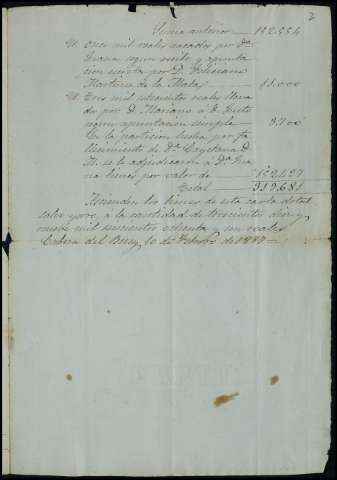 2
Suma anterior 152.554
It. Once mil reales sacados por Dª
Juana segun recibo y apunta-
cion escrita por D. Feliciano
Martinez de la Mata 11.000
It. Tres mil setecientos reales lleva-
do por D. Mariano a D. Justo
segun apuntacion simple 3.700
En la particion hecha por fa-
llecimiento de Dª Cayetana D.
M. se le adjudicaron a Dª Jua-
na bienes por valor de 152.427
Total 319.681
Ascienden los bienes de esta carta dotal
salvo yerro, a la cantidad de trescientos diez y
nueve mil seiscientos ochenta y un reales
del 10 de Febrero de 1887